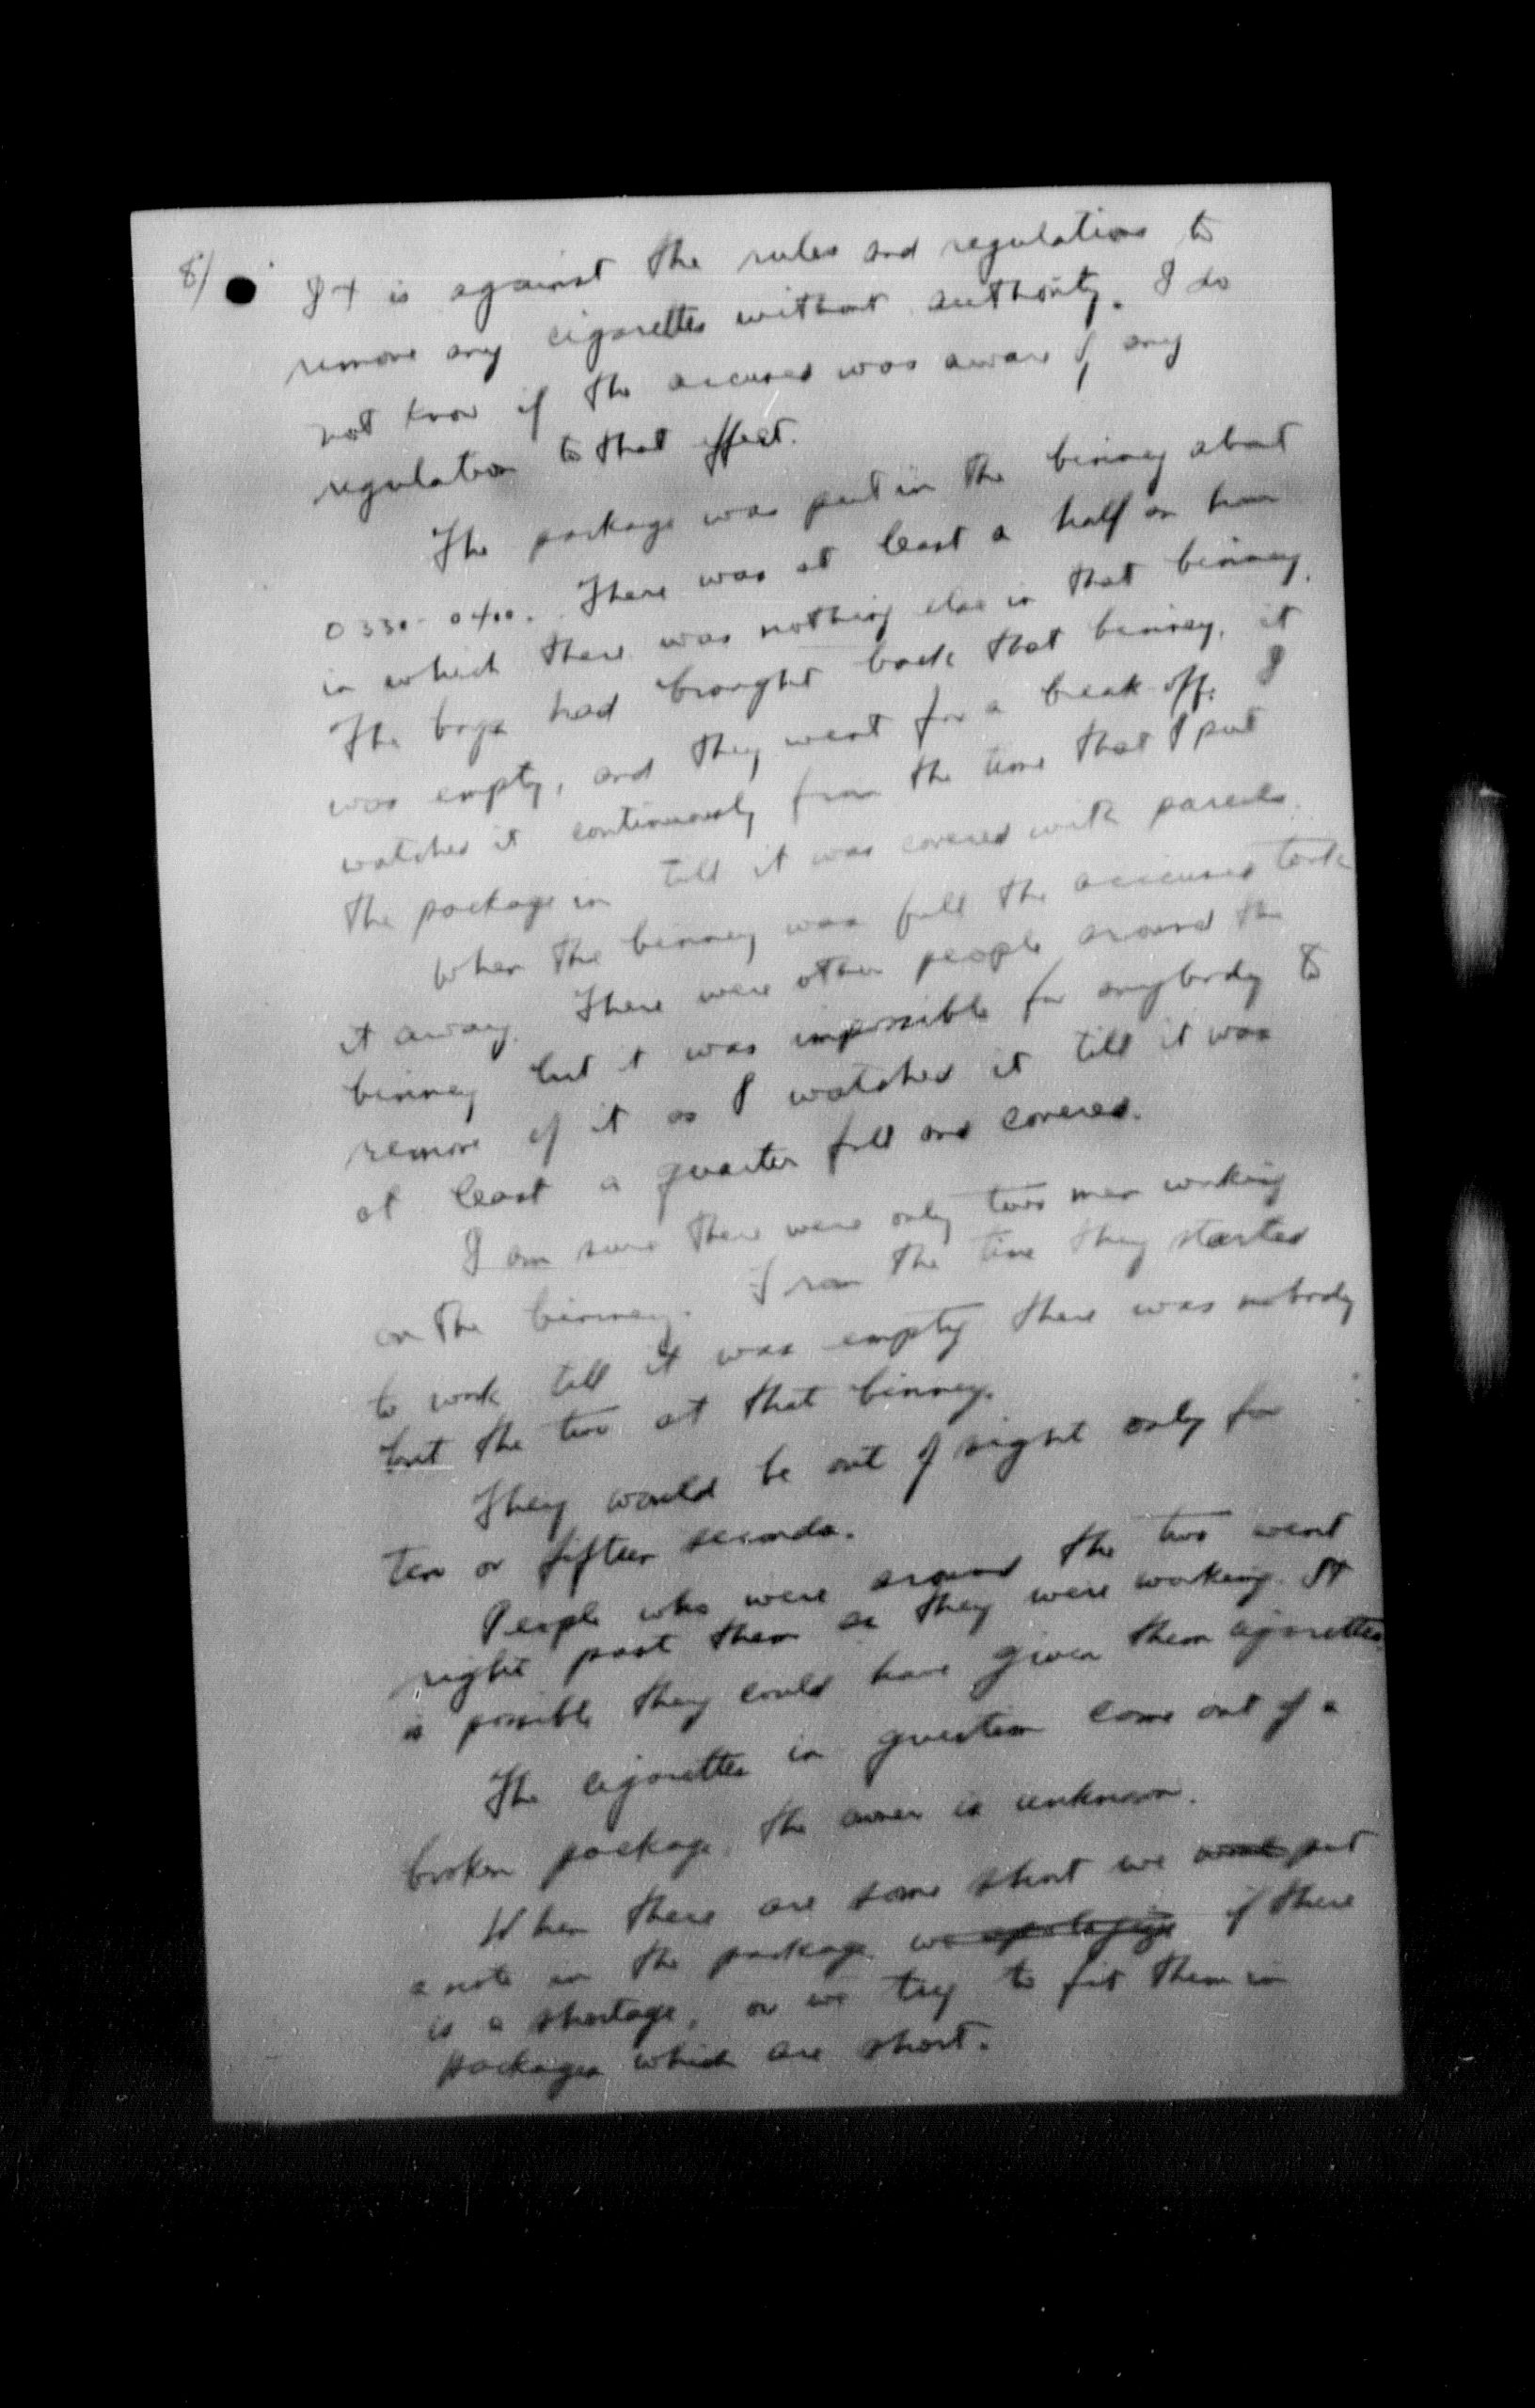 8/ It is against the rules and regulations to
remove any cigarettes without authority. I do
not know if the accused was aware of any
regulation to that effect.
The package was put in the binney about
0330-0400. There was at least a half an hour
in which there was nothing else in that binney.
The boys had brought back that binney, it
was empty, and they went for a break off. I
watched it continuously from the time that I put
the package in till it was covered with parcels.
When the binney was full the accused took
it away. There were other people around the
binney but it was impossible for anybody to
remove of it as I watched it till it was
at least a quarter full and covered.
I am sure there were only two men working
on the binney. From the time they started
to work till it was empty there was nobody
but the two at that binney.
They would be out of sight only for
ten or fifteen seconds.
People who were around the two went
right past them as they were working. It
is possible they could have given them cigarettes.
The cigarettes in question came out of a
broken package, the owner is unknown.
When there are some short we put
a note in the package we apologize if there
is a shortage, or we try to fit them in
packages which are short.